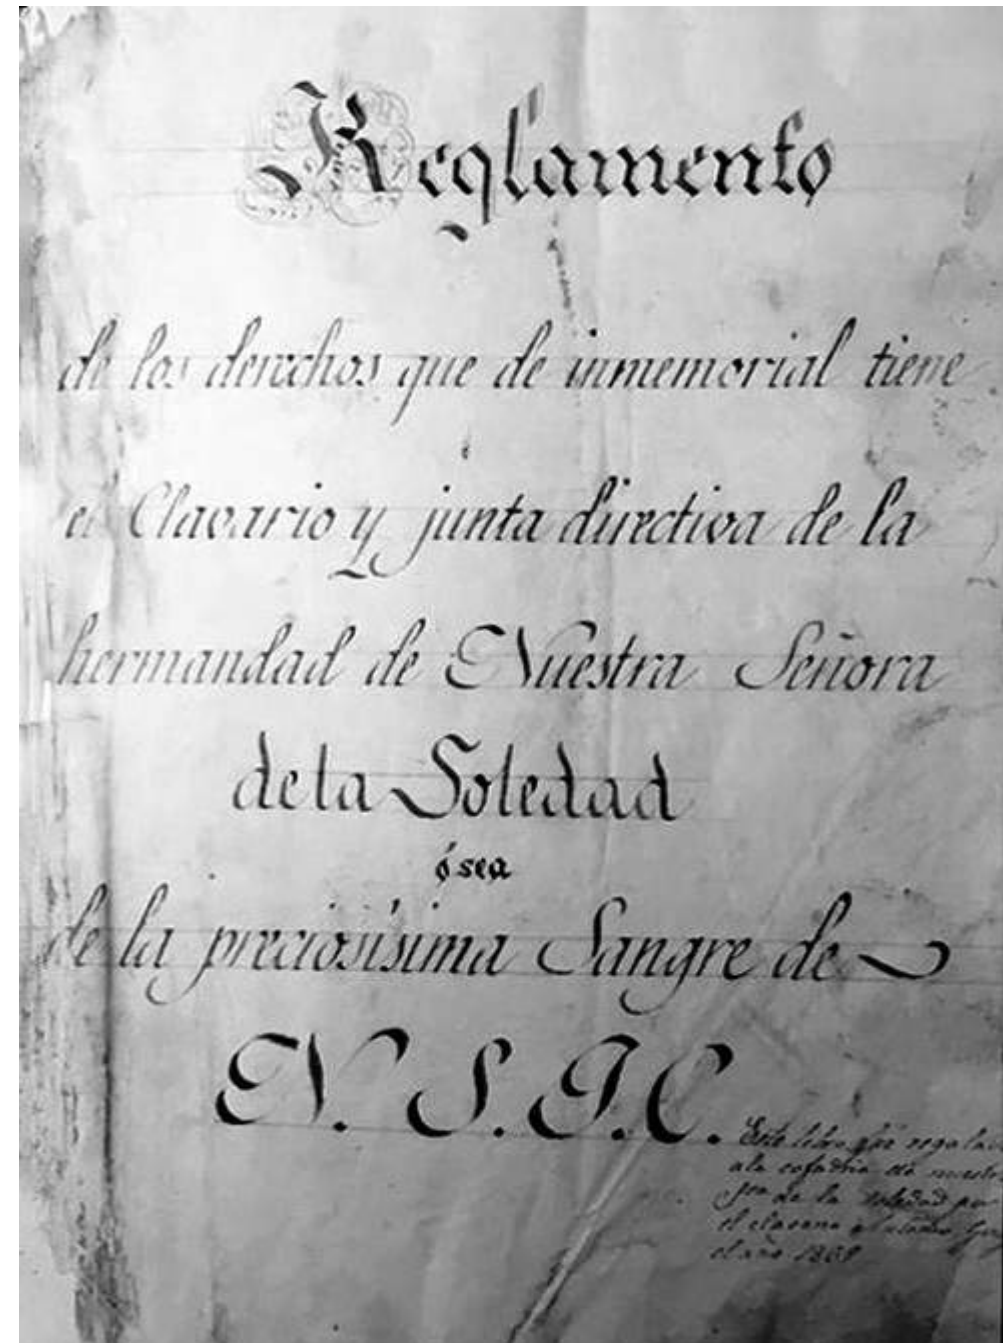 Reglamento
de los derechos que de inmemorial tiene
el Clavario y junta directiva de la
hermandad de Nuestra Señora
de la Soledad
ó sea
de la preciosísima Sangre de
N. S. J. C.
Este libro fué regalado
a la cofadria de nuestra
Sra de la soledad por
el clavario
el año 1869